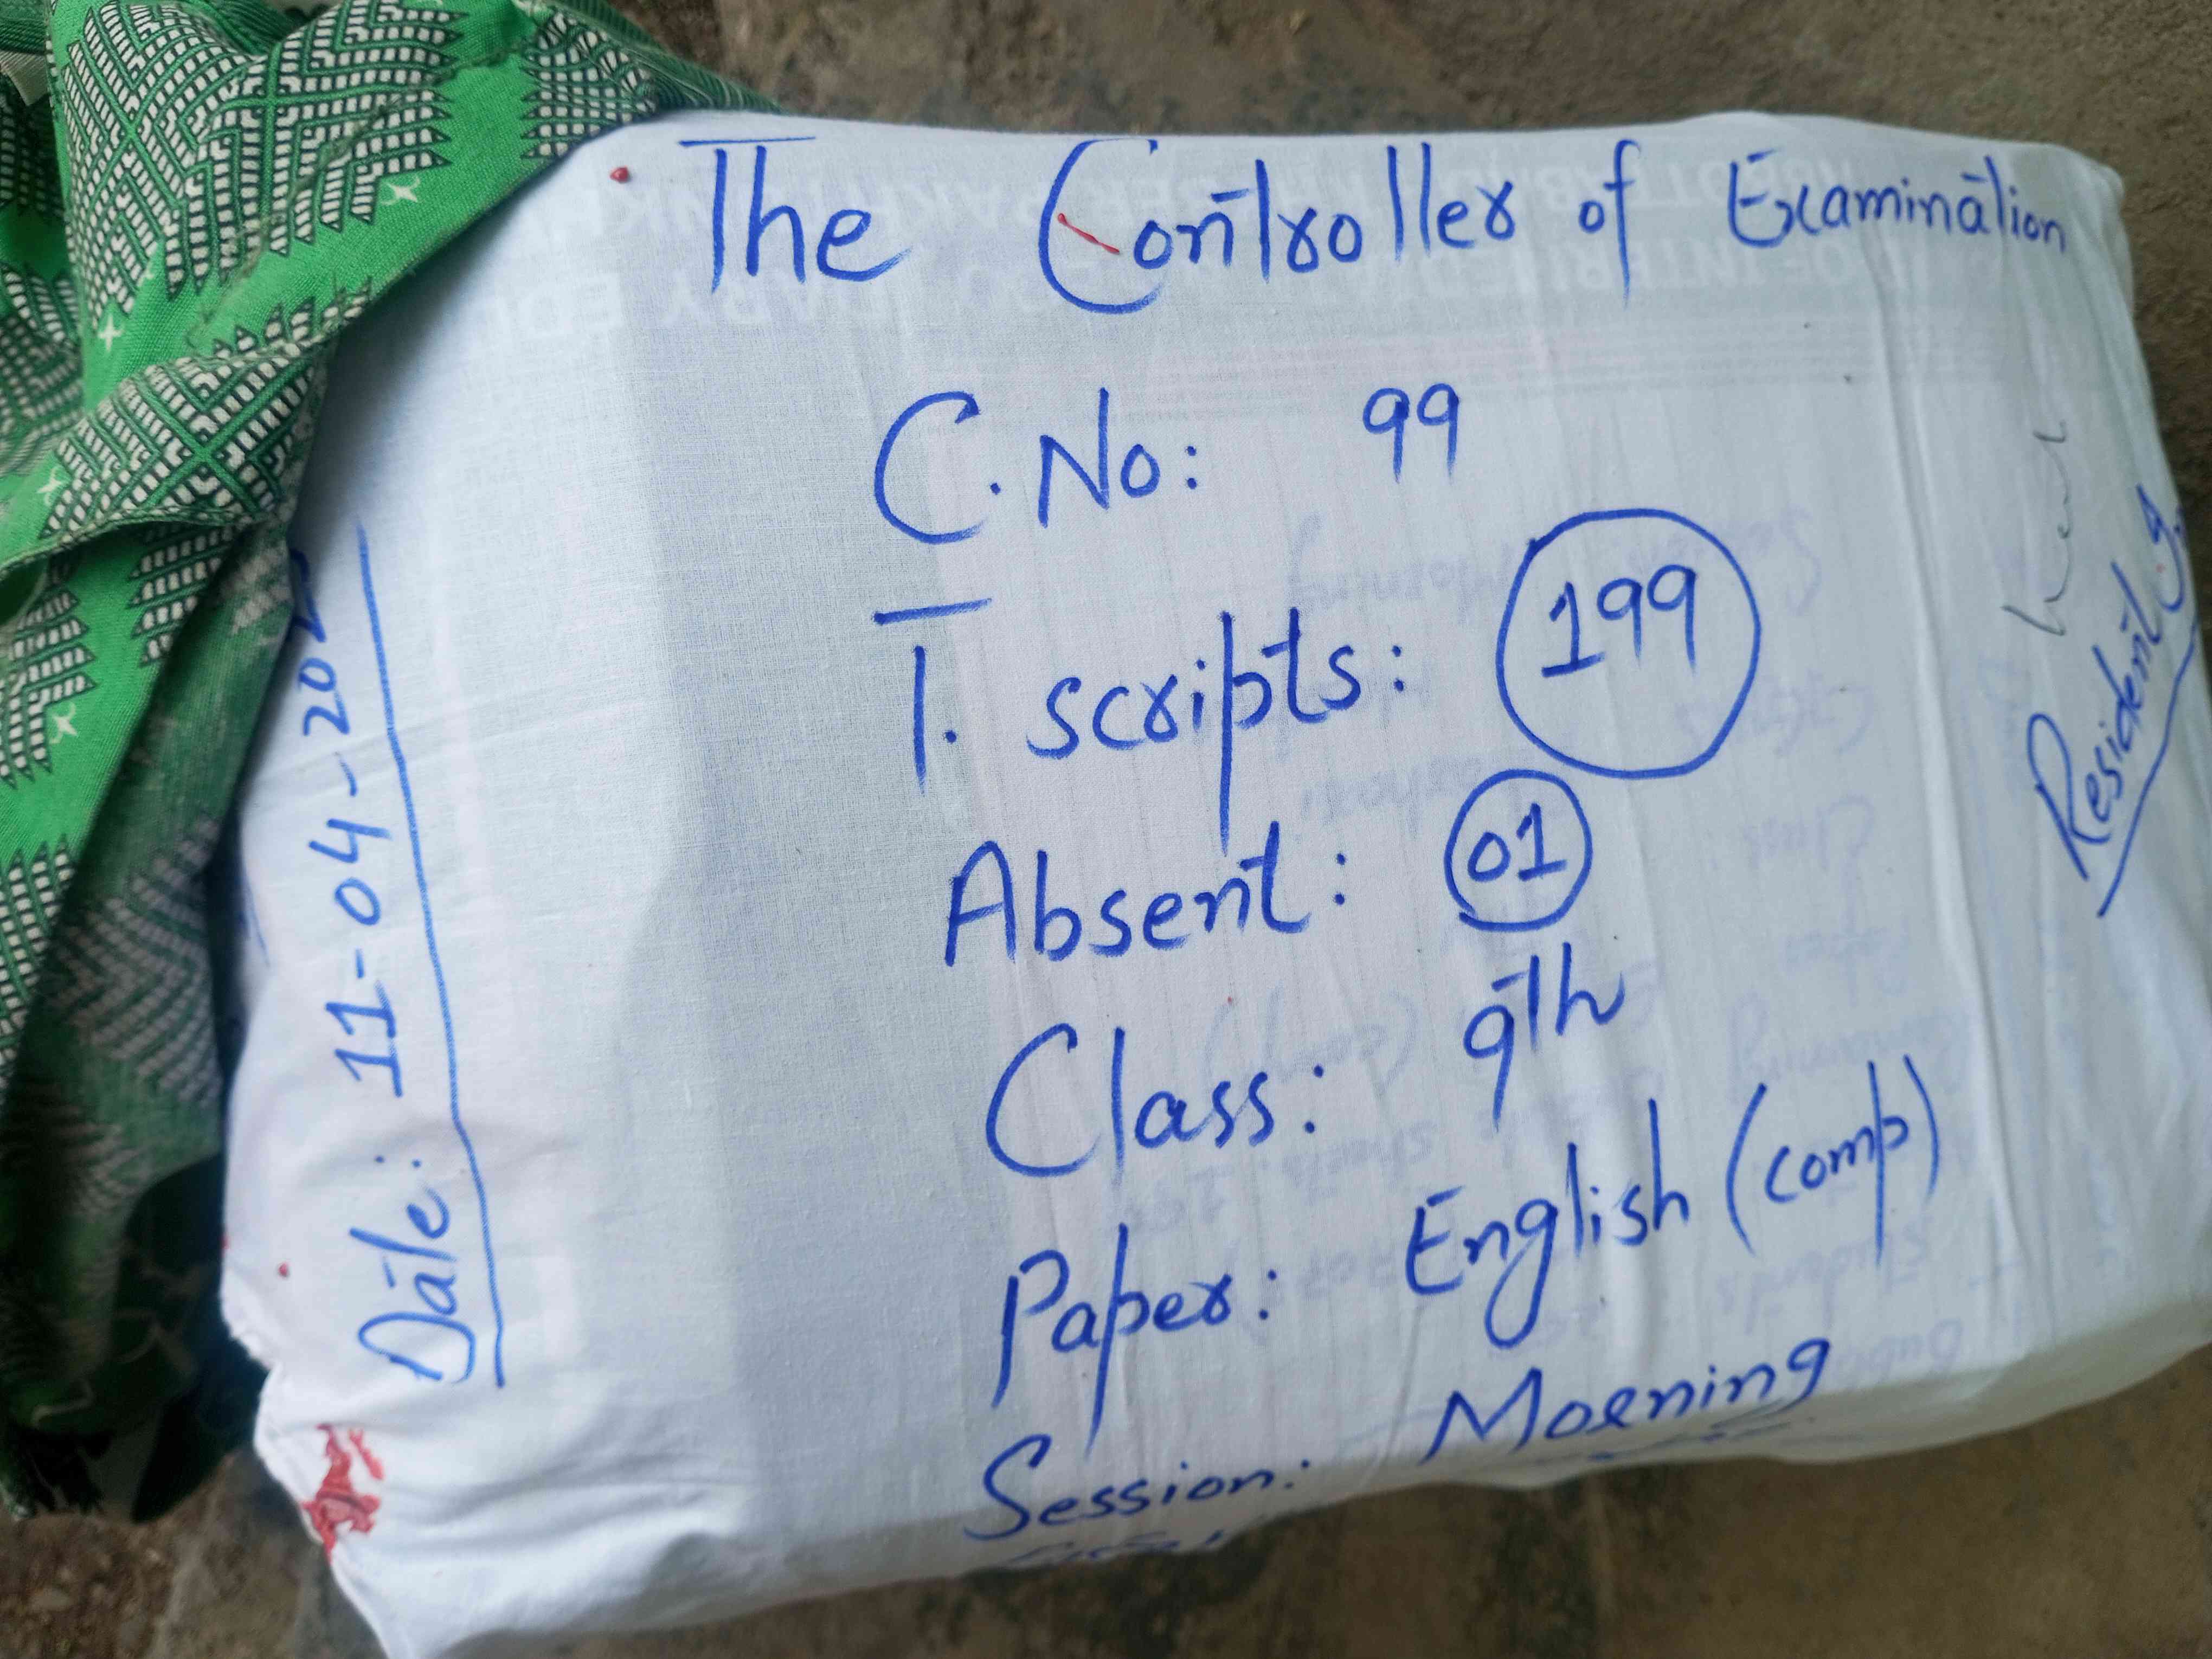 The Controller of Examination
C. No: 99
T. scripts: 199
Absent: 01
Class: 9th
Paper: English (comp)
Session: Morning
Date: 11-04-20
Resident